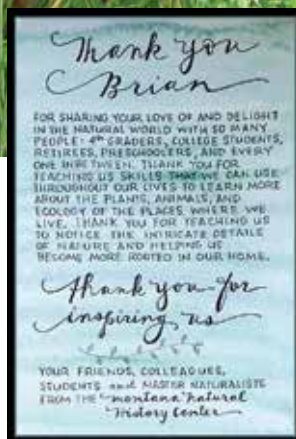 Thank you
Brian
FOR SHARING YOUR LOVE OF AND DELIGHT
IN THE NATURAL WORLD WITH SO MANY
PEOPLE: 4TH GRADERS, COLLEGE STUDENTS,
RETIREES, PRESCHOOLERS, AND EVERY
ONE IN BETWEEN. THANK YOU FOR
TEACHING US SKILLS THAT WE CAN USE
THROUGHOUT OUR LIVES TO LEARN MORE
ABOUT THE PLANTS, ANIMALS, AND
ECOLOGY OF THE PLACES WHERE WE
LIVE. THANK YOU FOR TEACHING US
TO NOTICE THE INTRICATE DETAILS
OF NATURE AND HELPING US
BECOME MORE ROOTED IN OUR HOME.
thank you for
inspiring us
YOUR FRIENDS, COLLEAGUES,
STUDENTS and MASTER NATURALISTS
FROM THE montana natural
History Center